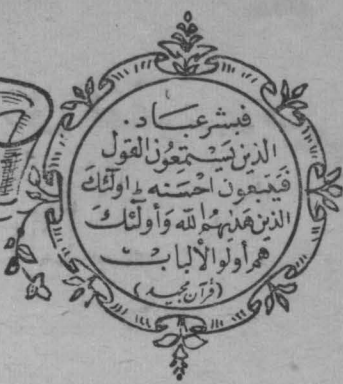 فبشر عباد .
الذين يَسْتَمِعُونَ القول
فَيَتَّبِعُونَ احْسَنَه ط اولٓئك
الذين هَدٰىهُمُ الله وَأُولٓئك
هم أولو الألباب
(قرآن مجید)